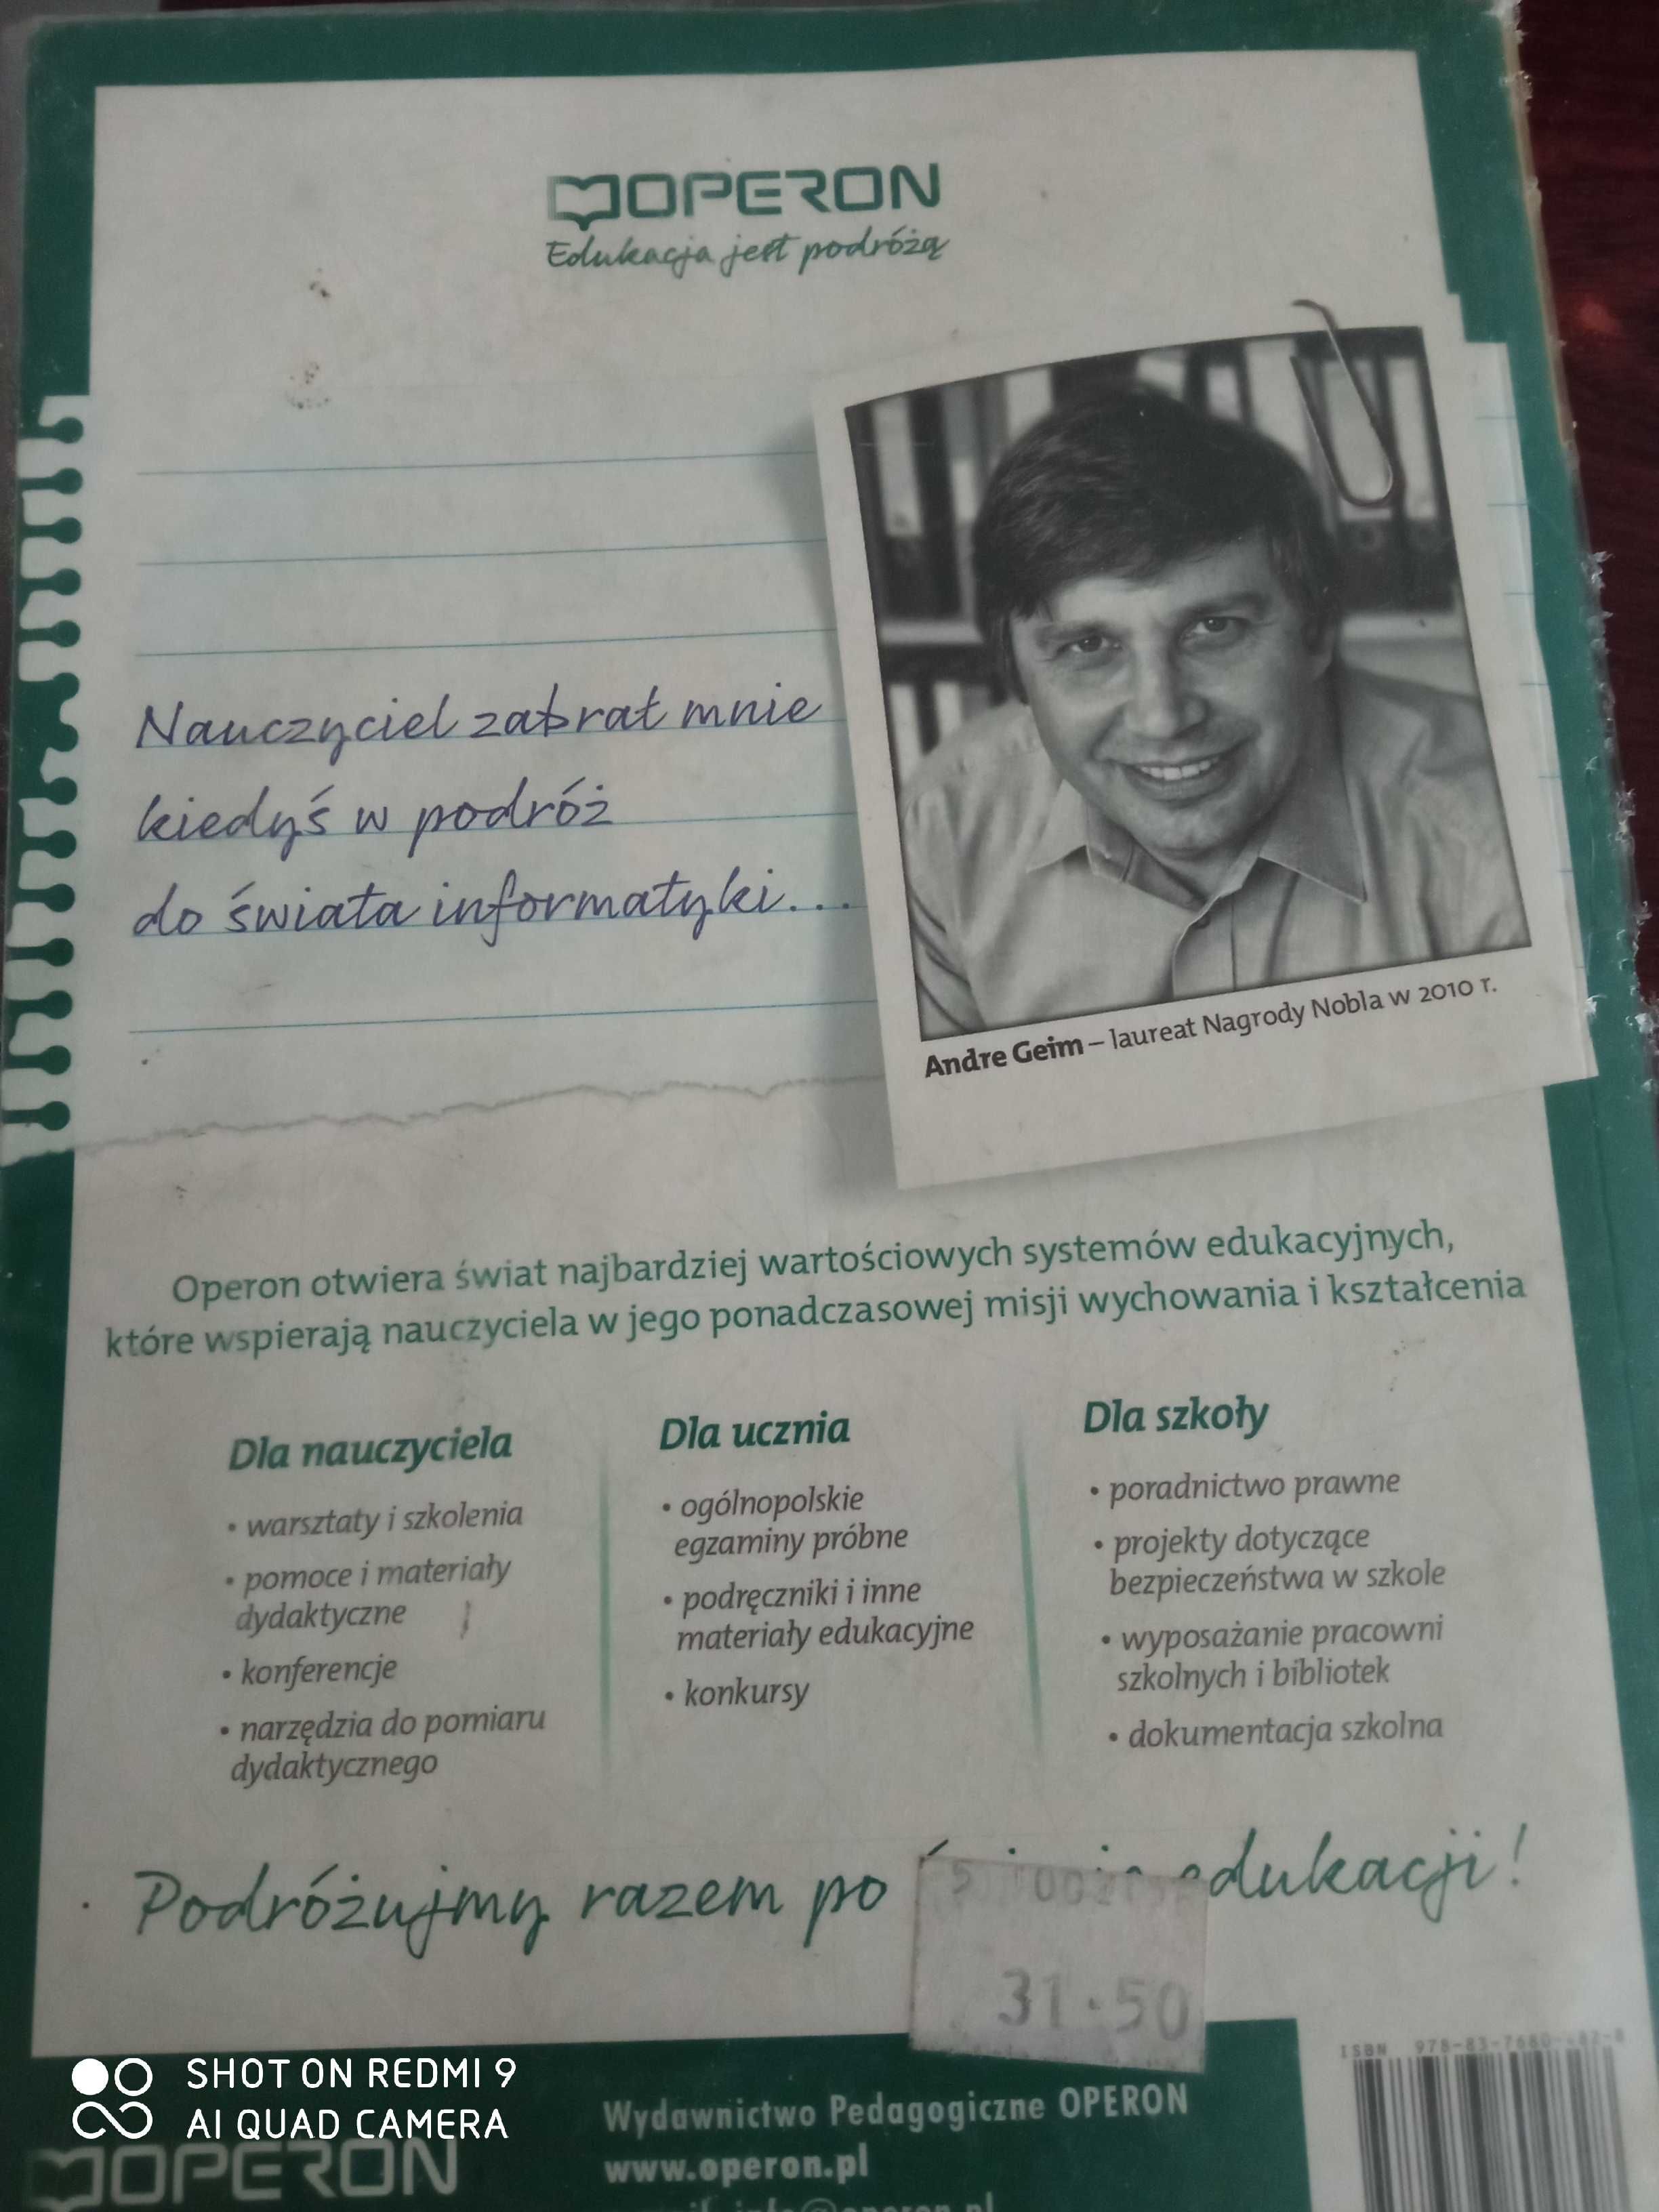 OPERON
Edukacja jest podróżą
Nauczyciel zabrał mnie
kiedyś w podróż
do świata informatyki...
Andre Geim – laureat Nagrody Nobla w 2010 r.
Operon otwiera świat najbardziej wartościowych systemów edukacyjnych,
które wspierają nauczyciela w jego ponadczasowej misji wychowania i kształcenia
Dla nauczyciela
• warsztaty i szkolenia
• pomoce i materiały
dydaktyczne
• konferencje
• narzędzia do pomiaru
dydaktycznego
Dla ucznia
• ogólnopolskie
egzaminy próbne
• podręczniki i inne
materiały edukacyjne
• konkursy
Dla szkoły
• poradnictwo prawne
• projekty dotyczące
bezpieczeństwa w szkole
• wyposażanie pracowni
szkolnych i bibliotek
• dokumentacja szkolna
Podróżujmy razem po edukacji!
31.50
ISBN
SHOT ON REDMI 9
AI QUAD CAMERA
OPERON
Wydawnictwo Pedagogiczne OPERON
www.operon.pl